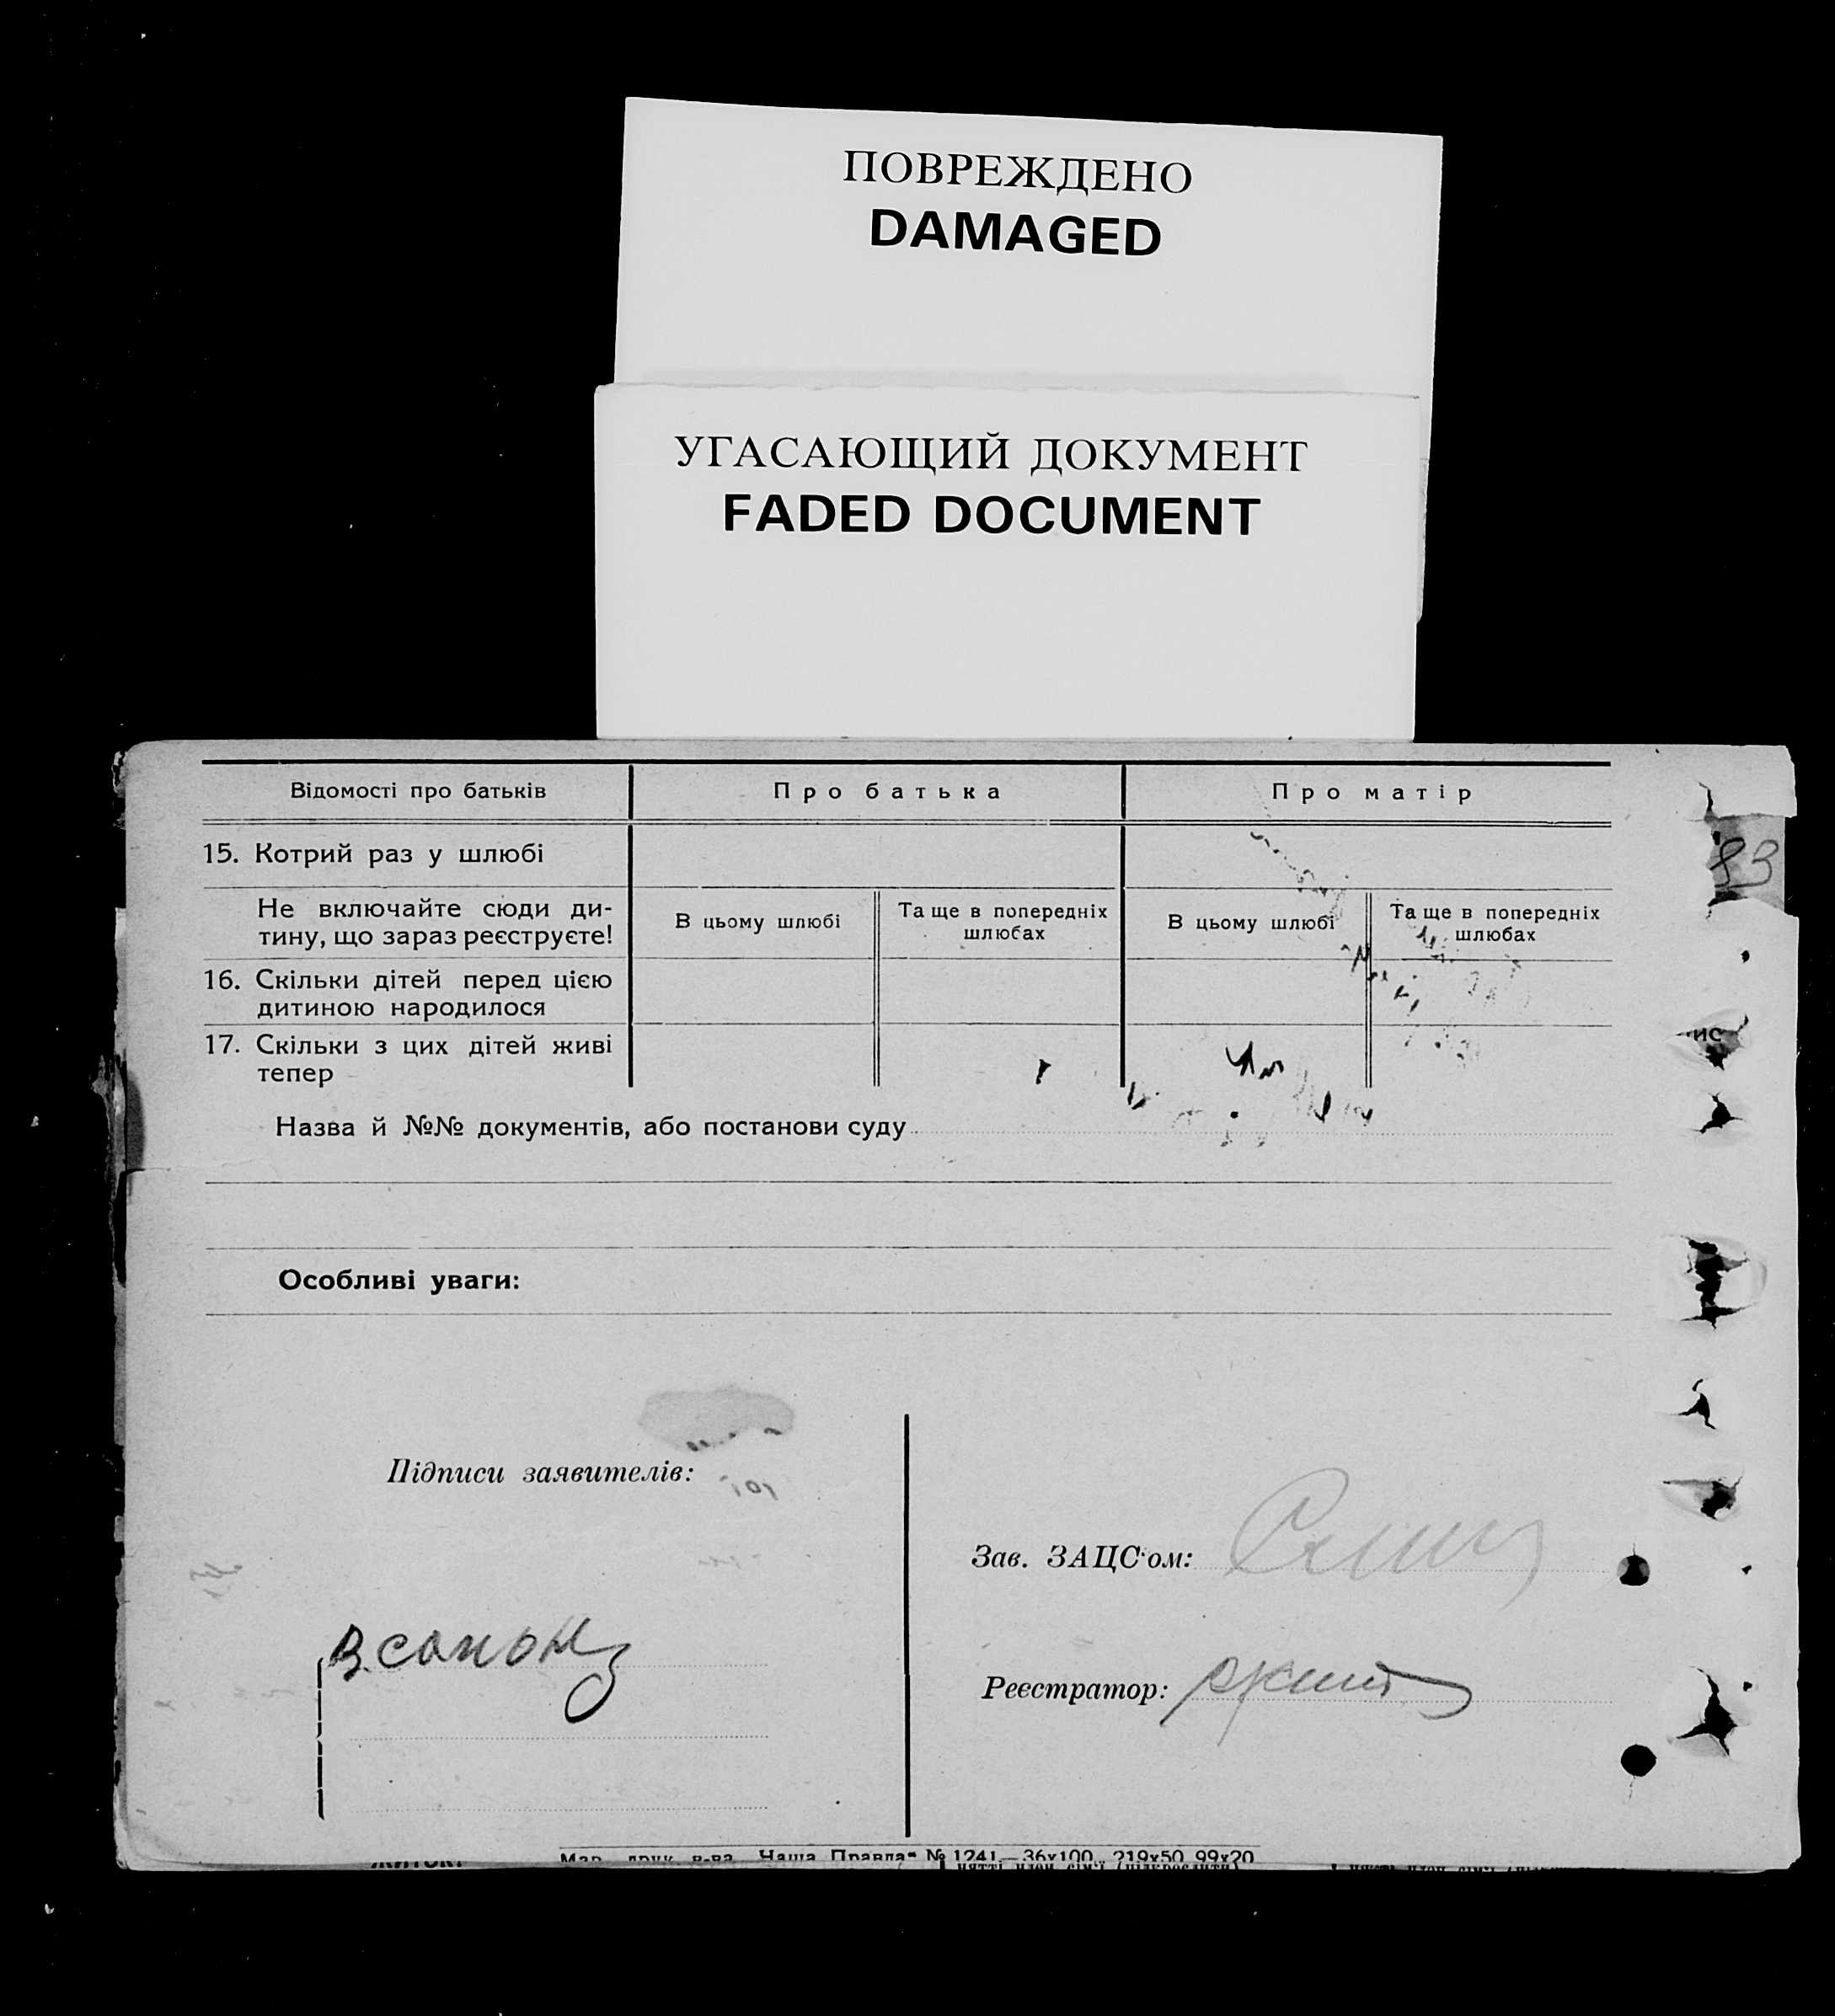 ПОВРЕЖДЕНО
DAMAGED
УГАСАЮЩИЙ ДОКУМЕНТ
FADED DOCUMENT
Відомості про батьків
Про батька
Про матір
83
15. Котрий раз у шлюбі
Не включайте сюди ди-
тину, що зараз реєструєте!
В цьому шлюбі
Та ще в попередніх
шлюбах
В цьому шлюбі
Та ще в попередніх
шлюбах
16. Скільки дітей перед цією
дитиною народилося
17. Скільки з цих дітей живі
тепер
ис
Назва й №№ документів, або постанови суду
Особливі уваги:
Підписи заявителів:
Зав. ЗАЦС'ом:
Реєстратор:
Мар. друк. в-ва „Наша Правда" № 1241—36х100. 219х50 99х20